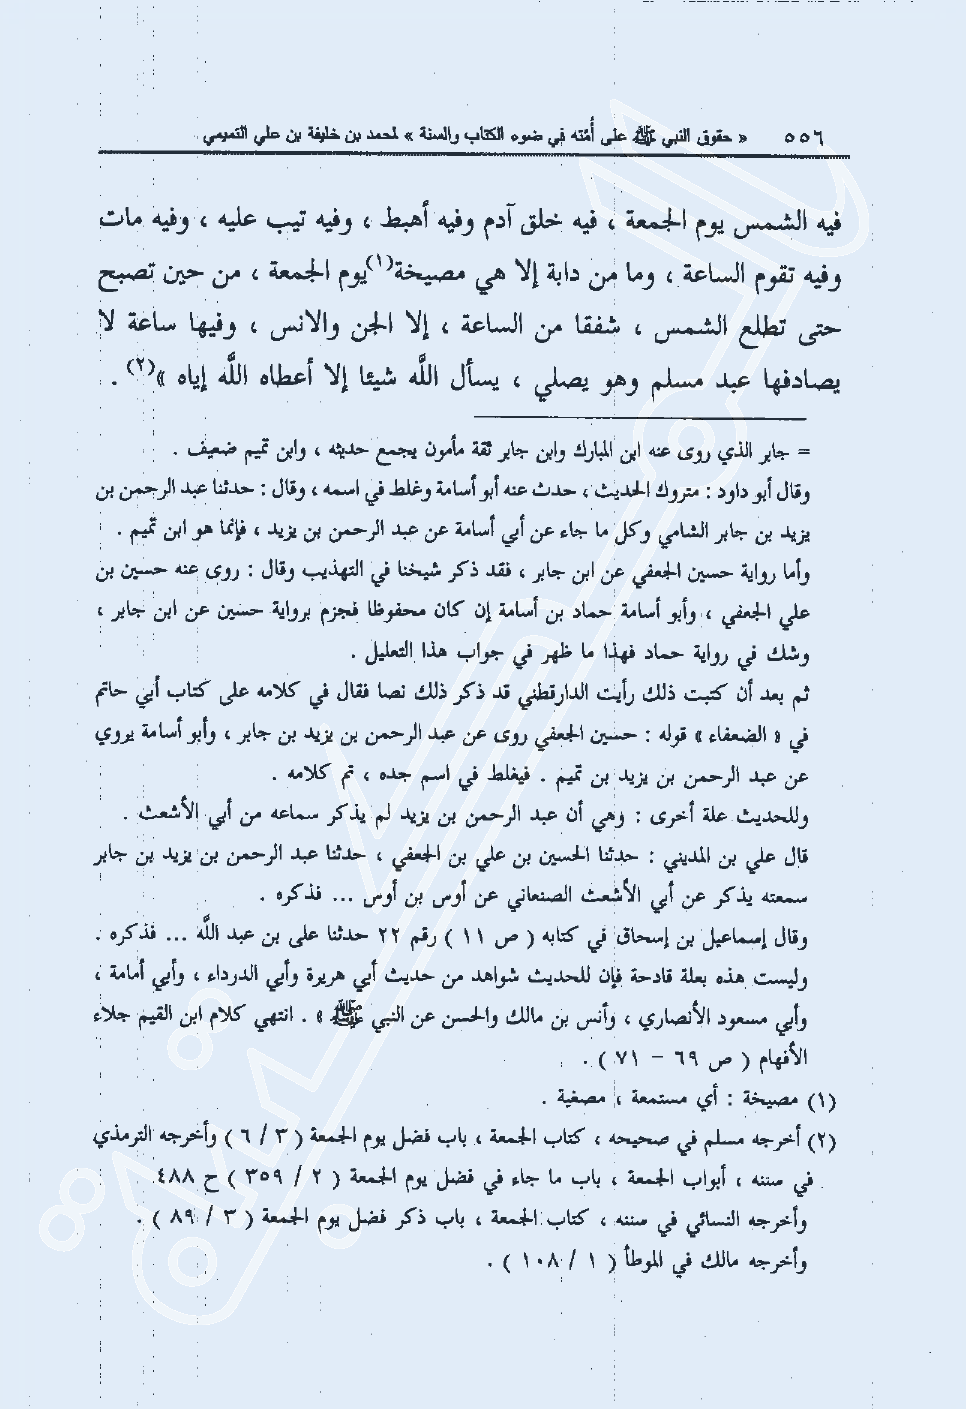 ٥٥٦ « حقوق النبي ﷺ على أُمته في ضوء الكتاب والسنة » لمحمد بن خليفة بن علي التميمي
فيه الشمس يوم الجمعة ، فيه خلق آدم وفيه أهبط ، وفيه تيب عليه ، وفيه مات
وفيه تقوم الساعة ، وما من دابة إلا هي مصيخة(١) يوم الجمعة ، من حين تصبح
حتى تطلع الشمس ، شفقا من الساعة ، إلا الجن والانس ، وفيها ساعة لا
يصادفها عبد مسلم وهو يصلي ، يسأل اللَّه شيئا إلا أعطاه اللَّه إياه »(٢) .
= جابر الذي روى عنه ابن المبارك وابن جابر ثقة مأمون يجمع حديثه ، وابن تميم ضعيف .
وقال أبو داود : متروك الحديث ، حدث عنه أبو أسامة وغلط في اسمه ، وقال : حدثنا عبد الرحمن بن
يزيد بن جابر الشامي وكل ما جاء عن أبي أسامة عن عبد الرحمن بن يزيد ، فإنما هو ابن تميم .
وأما رواية حسين الجعفي عن ابن جابر ، فقد ذكر شيخنا في التهذيب وقال : روى عنه حسين بن
علي الجعفي ، وأبو أسامة حماد بن أسامة إن كان محفوظا فجزم برواية حسين عن ابن جابر ،
وشك في رواية حماد فهذا ما ظهر في جواب هذا التعليل .
ثم بعد أن كتبت ذلك رأيت الدارقطني قد ذكر ذلك نصا فقال في كلامه على كتاب أبي حاتم
في « الضعفاء » قوله : حسين الجعفي روى عن عبد الرحمن بن يزيد بن جابر ، وأبو أسامة يروي
عن عبد الرحمن بن يزيد بن تميم . فيغلط في اسم جده ، تم كلامه .
وللحديث علة أخرى : وهي أن عبد الرحمن بن يزيد لم يذكر سماعه من أبي الأشعث .
قال علي بن المديني : حدثنا الحسين بن علي بن الجعفي ، حدثنا عبد الرحمن بن يزيد بن جابر
سمعته يذكر عن أبي الأشعث الصنعاني عن أوس بن أوس ... فذكره .
وقال إسماعيل بن إسحاق في كتابه ( ص ١١ ) رقم ٢٢ حدثنا على بن عبد اللَّه ... فذكره .
وليست هذه بعلة قادحة فإن للحديث شواهد من حديث أبي هريرة وأبي الدرداء ، وأبي أمامة ،
وأبي مسعود الأنصاري ، وأنس بن مالك والحسن عن النبي ﷺ » . انتهي كلام ابن القيم جلاء
الأفهام ( ص ٦٩ – ٧١ ) .
(١) مصيخة : أي مستمعة ، مصغية .
(٢) أخرجه مسلم في صحيحه ، كتاب الجمعة ، باب فضل يوم الجمعة ( ٣ / ٦ ) وأخرجه الترمذي
في سننه ، أبواب الجمعة ، باب ما جاء في فضل يوم الجمعة ( ٢ / ٣٥٩ ) ح ٤٨٨
وأخرجه النسائي في سننه ، كتاب الجمعة ، باب ذكر فضل يوم الجمعة ( ٣ / ٨٩ ) .
وأخرجه مالك في الموطأ ( ١ / ١٠٨ ) .